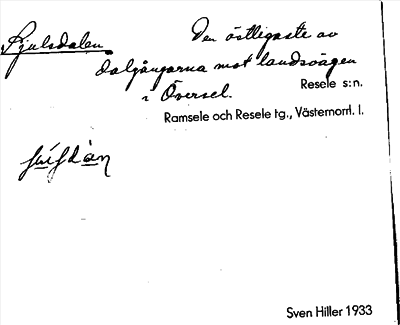 Kjulsdalen
Den östligaste av
dalgångarna mot landsvägen
i Översel.
Resele s:n.
Ramsele och Resele tg., Västernorrl. l.
Sven Hiller 1933